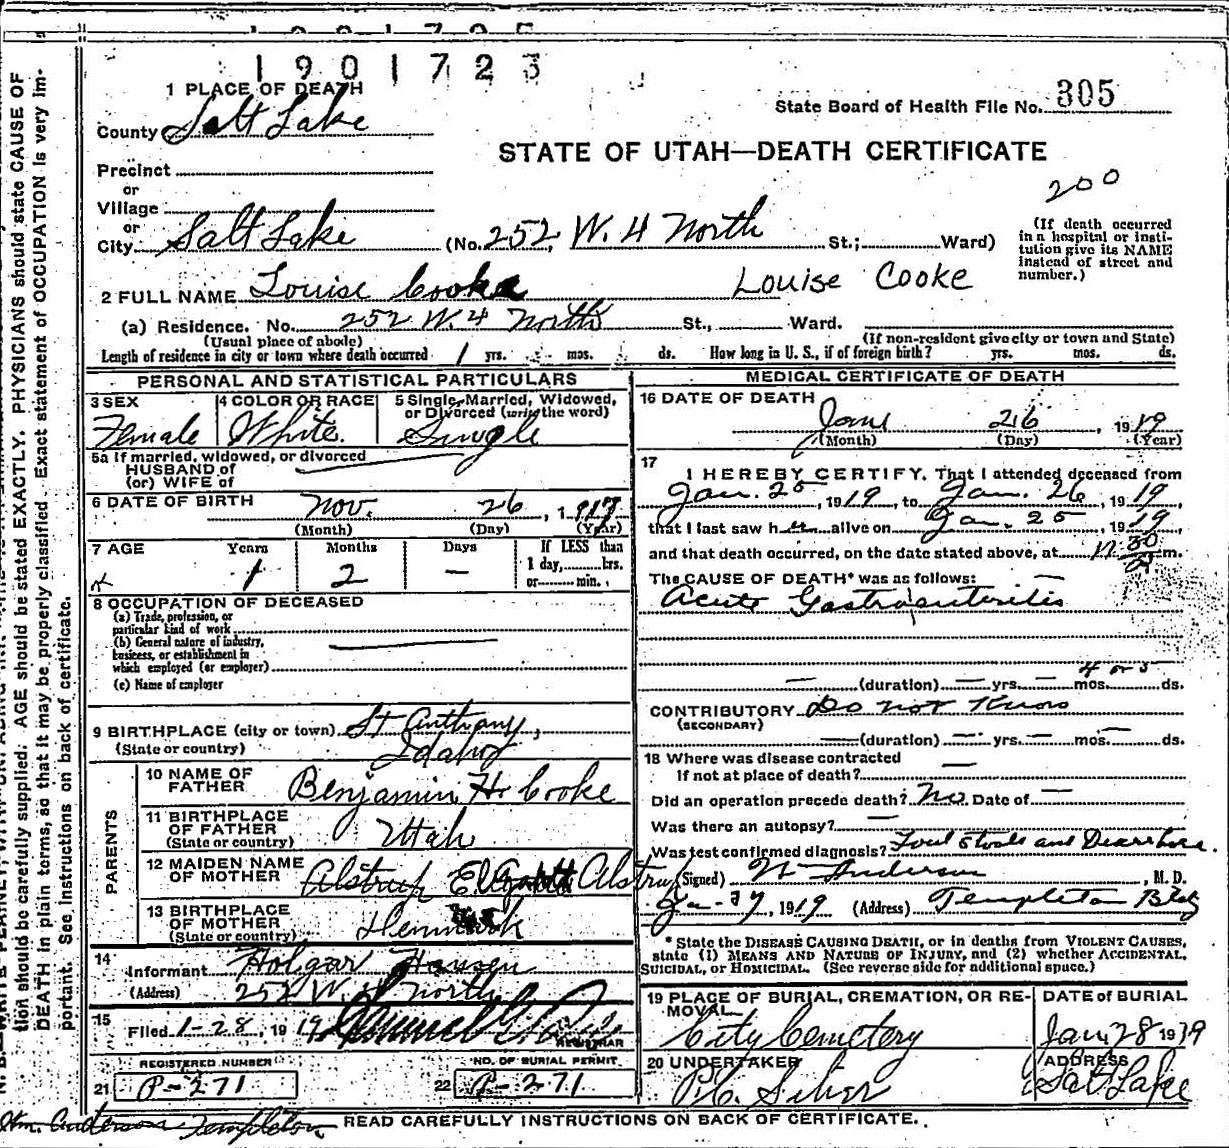 1901723
1 PLACE OF DEATH
State Board of Health File No. 305
County Salt Lake
STATE OF UTAH—DEATH CERTIFICATE
Precinct
200
or
Village
or
City Salt Lake (No. 252 W. 4 North St.; Ward)
(If death occurred in a hospital or institution give its NAME instead of street and number.)
2 FULL NAME Louise Cooke Louise Cooke
(a) Residence. No. 252 W. 4 North St., Ward.
(Usual place of abode) (If non-resident give city or town and State)
Length of residence in city or town where death occurred 1 yrs. mos. ds. How long in U. S., if of foreign birth? yrs. mos. ds.
PERSONAL AND STATISTICAL PARTICULARS
3 SEX 4 COLOR OR RACE 5 Single, Married, Widowed, or Divorced (write the word)
Female White. Single
5a If married, widowed, or divorced
HUSBAND of
(or) WIFE of
6 DATE OF BIRTH Nov. 26, 1917
(Month) (Day) (Year)
7 AGE Years Months Days If LESS than
1 2 — 1 day, hrs.
or min.
8 OCCUPATION OF DECEASED
(a) Trade, profession, or
particular kind of work
(b) General nature of industry,
business, or establishment in
which employed (or employer)
(c) Name of employer
9 BIRTHPLACE (city or town) St Anthony,
(State or country) Idaho
PARENTS
10 NAME OF
FATHER Benjamin H. Cooke
11 BIRTHPLACE
OF FATHER
(State or country) Utah
12 MAIDEN NAME
OF MOTHER Alstrup Elizabeth Alstrup
13 BIRTHPLACE
OF MOTHER
(State or country) Denmark
14
Informant Holgar Hansen
(Address) 252 W. 4 North
15
Filed 1-28, 1919
REGISTRAR
REGISTERED NUMBER NO. OF BURIAL PERMIT
21 P-271 22 P-271
MEDICAL CERTIFICATE OF DEATH
16 DATE OF DEATH
Jany 26 1919
(Month) (Day) (Year)
17
I HEREBY CERTIFY, That I attended deceased from
Jan. 25, 1919, to Jan. 26, 1919,
that I last saw her alive on Jan. 25, 1919
and that death occurred, on the date stated above, at 30 m.
The CAUSE OF DEATH* was as follows:
Acute Gastroenteritis
4 or 5
— (duration) — yrs. — mos. ds.
CONTRIBUTORY Do not Know
(SECONDARY)
— (duration) — yrs. — mos. — ds.
18 Where was disease contracted
If not at place of death? —
Did an operation precede death? No Date of —
Was there an autopsy? —
Was test confirmed diagnosis? Foul Stools and Diarrhoea.
(Signed) W Anderson, M. D.
Jan-27, 1919 (Address) Templeton Bldg
* State the DISEASE CAUSING DEATH, or in deaths from VIOLENT CAUSES,
state (1) MEANS AND NATURE OF INJURY, and (2) whether ACCIDENTAL,
SUICIDAL, or HOMICIDAL. (See reverse side for additional space.)
19 PLACE OF BURIAL, CREMATION, OR RE-
MOVAL DATE of BURIAL
City Cemetery Jan 28 1919
20 UNDERTAKER ADDRESS
Salt Lake
Wm. Anderson Templeton READ CAREFULLY INSTRUCTIONS ON BACK OF CERTIFICATE.
tion should be carefully supplied. AGE should be stated EXACTLY. PHYSICIANS should state CAUSE OF
DEATH in plain terms, so that it may be properly classified. Exact statement of OCCUPATION is very im-
portant. See instructions on back of certificate.